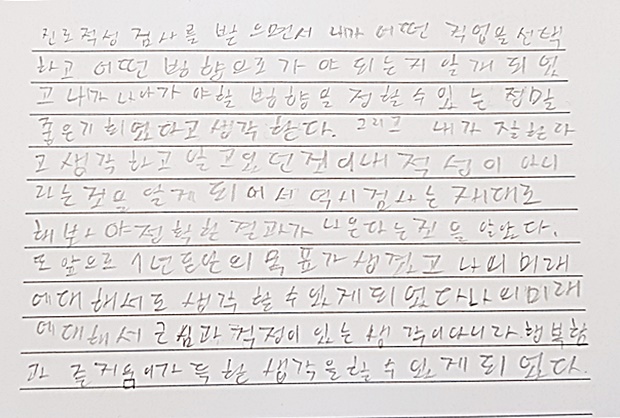 진로적성 검사를 받으면서 내가 어떤 직업을 선택
하고 어떤 방향으로 가야 되는지 알게 되었
고 내가 나아가야할 방향을 정할 수 있는 정말
좋은기회였다고 생각한다. 그리고 내가 잘한다
고 생각하고 알고있던것이내 적성이 아니
라는것을 알게 되어서 역시검사는 제대로
해봐야정확한 결과가 나온다는것을 알았다.
또 앞으로 1년동안의 목표가 생겼고 나의미래
에대해서도 생각할수있게되었다나의미래
에대해서 근심과 걱정이 있는 생각이아니라 행복함
과 즐거움이가득한 생각을할 수 있게 되었다.